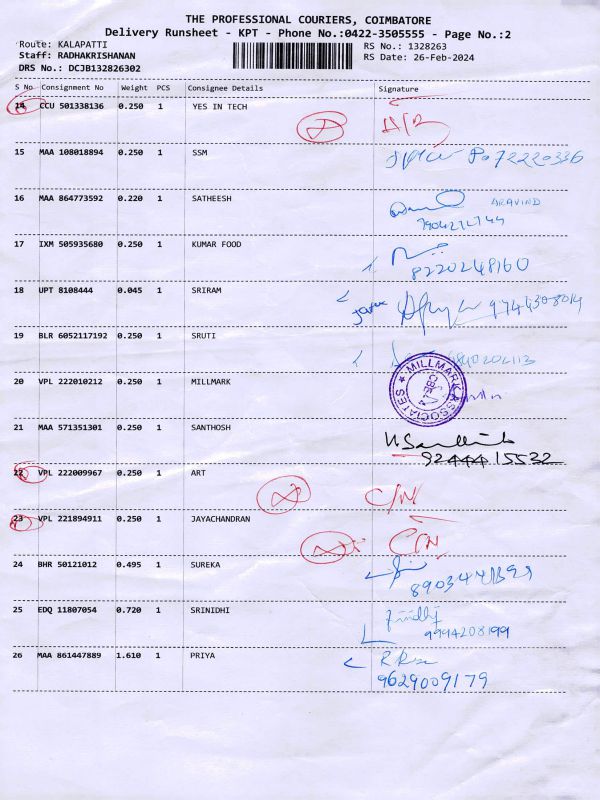 THE PROFESSIONAL COURIERS, COIMBATORE
Delivery Runsheet - KPT - Phone No.:0422-3505555 - Page No.:2
Route: KALAPATTI RS No.: 1328263
Staff: RADHAKRISHANAN RS Date: 26-Feb-2024
DRS No.: DCJB132826302
S No Consignment No Weight PCS Consignee Details Signature
14 CCU 501338136 0.250 1 YES IN TECH
15 MAA 108018894 0.250 1 SSM
16 MAA 864773592 0.220 1 SATHEESH ARAVIND
17 IXM 505935680 0.250 1 KUMAR FOOD
8220248160
18 UPT 8108444 0.045 1 SRIRAM
19 BLR 6052117192 0.250 1 SRUTI
20 VPL 222010212 0.250 1 MILLMARK
MILLMARK ASSOCIATES
21 MAA 571351301 0.250 1 SANTHOSH
92444 15532
22 VPL 222009967 0.250 1 ART C/N
23 VPL 221894911 0.250 1 JAYACHANDRAN C/N
24 BHR 50121012 0.495 1 SUREKA
25 EDQ 11807054 0.720 1 SRINIDHI
9994208199
26 MAA 861447889 1.610 1 PRIYA
9629009179